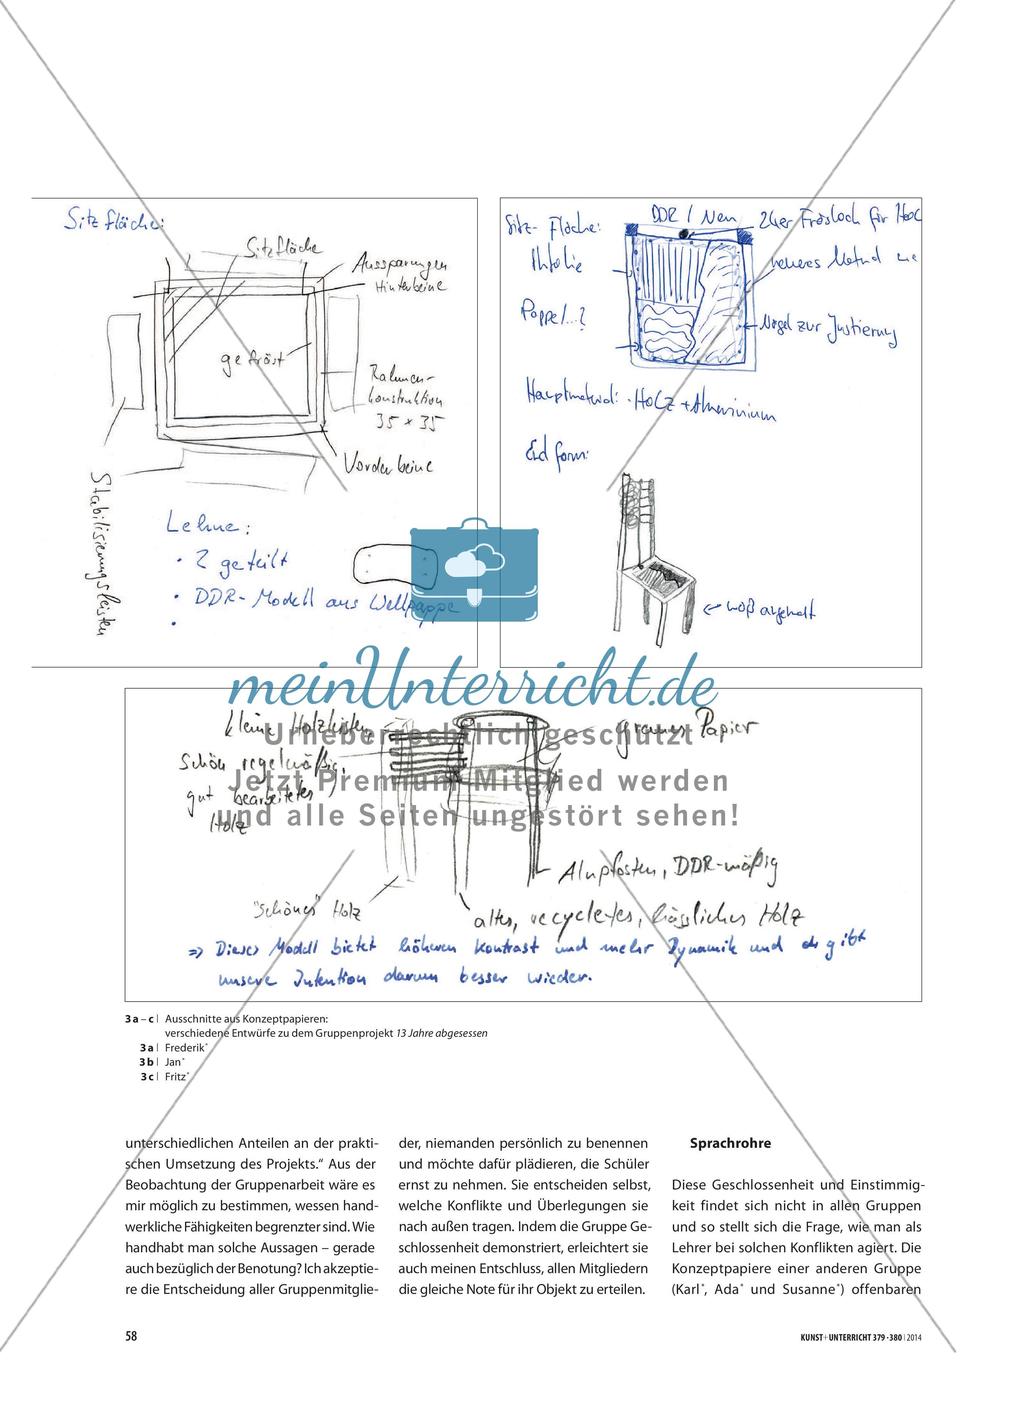 Sitzfläche:
Sitzfläche
Aussparungen
Hinterbeine
gefräst
Rahmen-
konstruktion
35 x 35
Vorderbeine
Stabilisierungsleisten
Lehne:
• 2 geteilt
• DDR-Modell aus Wellpappe
•
Sitz-Fläche:
DDR / Neu
24er Fräsloch für Holz
neues Material
Pappel...?
Nagel zur Justierung
Hauptmaterial: Holz + Aluminium
Endform:
kleine Holzleisten
graues Papier
Schön regelmäßig,
gut bearbeitetes
Holz
Alupfosten, DDR-mäßig
"Schönes" Holz
altes, recycletes, hässliches Holz
=> Dieses Modell bietet höheren Kontrast und mehr Dynamik und gibt
unsere Intention darum besser wieder.
meinUnterricht.de
Urheberrechtlich geschützt
Jetzt Premium Mitglied werden
und alle Seiten ungestört sehen!
3 a – c | Ausschnitte aus Konzeptpapieren:
verschiedene Entwürfe zu dem Gruppenprojekt 13 Jahre abgesessen
3 a | Frederik*
3 b | Jan*
3 c | Fritz*
unterschiedlichen Anteilen an der prakti-
schen Umsetzung des Projekts.“ Aus der
Beobachtung der Gruppenarbeit wäre es
mir möglich zu bestimmen, wessen hand-
werkliche Fähigkeiten begrenzter sind. Wie
handhabt man solche Aussagen – gerade
auch bezüglich der Benotung? Ich akzeptie-
re die Entscheidung aller Gruppenmitglie-
der, niemanden persönlich zu benennen
und möchte dafür plädieren, die Schüler
ernst zu nehmen. Sie entscheiden selbst,
welche Konflikte und Überlegungen sie
nach außen tragen. Indem die Gruppe Ge-
schlossenheit demonstriert, erleichtert sie
auch meinen Entschluss, allen Mitgliedern
die gleiche Note für ihr Objekt zu erteilen.
Sprachrohre
Diese Geschlossenheit und Einstimmig-
keit findet sich nicht in allen Gruppen
und so stellt sich die Frage, wie man als
Lehrer bei solchen Konflikten agiert. Die
Konzeptpapiere einer anderen Gruppe
(Karl*, Ada* und Susanne*) offenbaren
58
KUNST+UNTERRICHT 379-380 | 2014